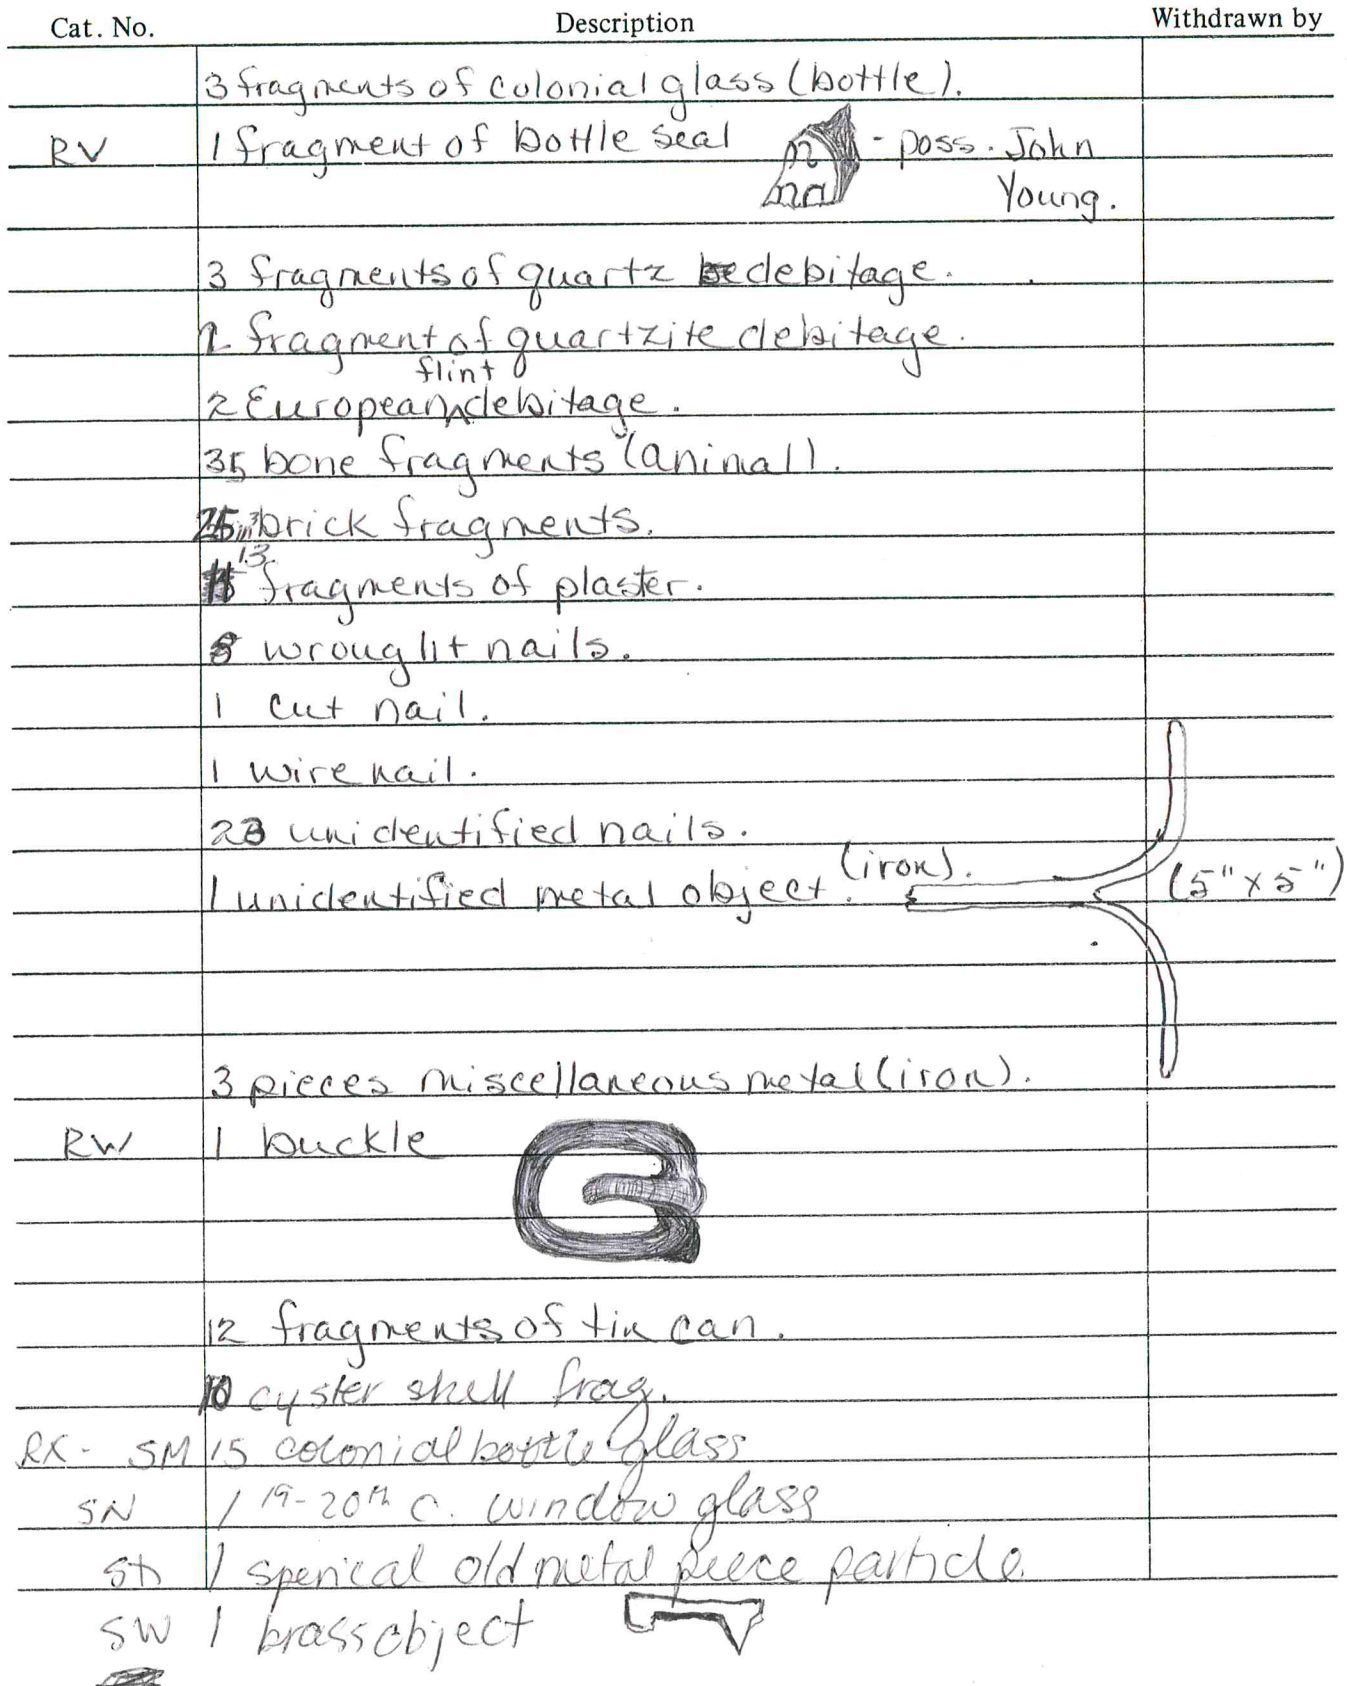 Cat. No. Description Withdrawn by
3 fragments of colonial glass (bottle).
RV 1 fragment of bottle seal - poss. John
Young.
3 fragments of quartz debitage.
fragment of quartzite debitage.
flint
2 European debitage.
35 bone fragments (animal).
25 brick fragments.
13
fragments of plaster.
8 wrought nails.
1 cut nail.
1 wire nail.
23 unidentified nails.
(iron).
1 unidentified metal object. (5" x 5")
3 pieces miscellaneous metal (iron).
RW 1 buckle
12 fragments of tin can.
10 oyster shell frag.
RX - SM 15 colonial bottle glass
SN 1 19-20th c. window glass
1 sperical old metal piece particle.
SW 1 brass object